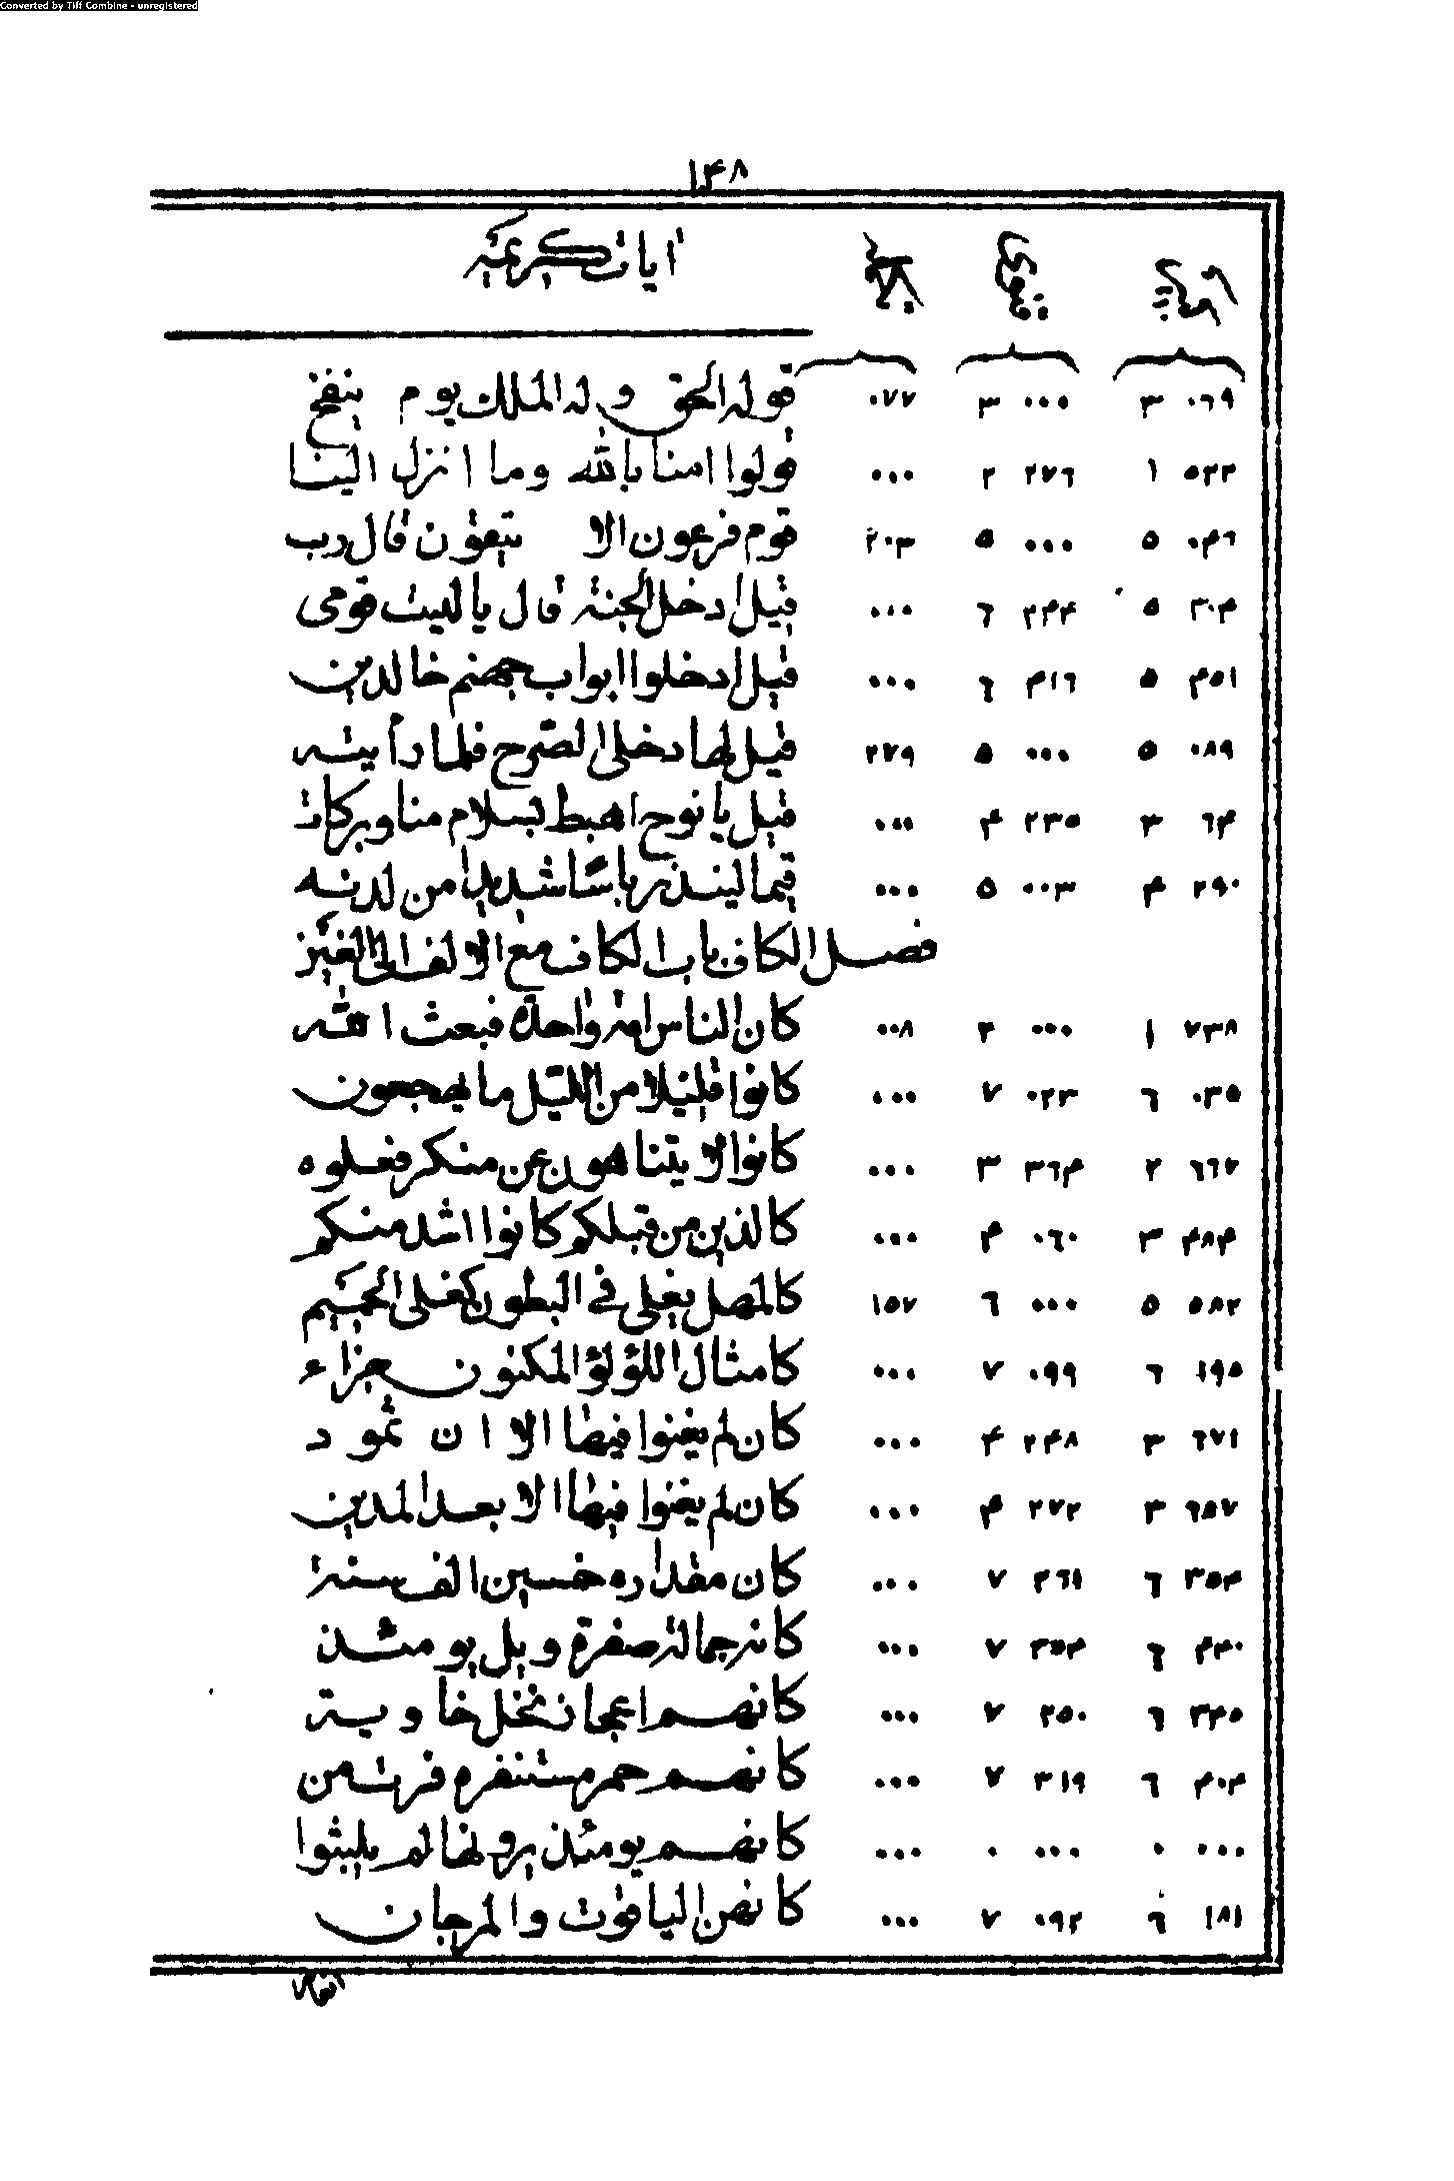 Converted by Tiff Combine - unregistered
١۴٨
ايات كريمة
٠٦٩ ٣ ٠٠٠ ٣ ٠٧٧ قوله الحق وله الملك يوم ينفخ
٥٢٢ ١ ٢٧٦ ٢ ٠٠٠ قولوا امنا بالله وما انزل الينا
٠۴٦ ٥ ٠٠٠ ٥ ٢٠٣ قوم فرعون الا يتقون قال رب
٣٠۴ ٥ ٢۴۴ ٦ ٠٠٠ قيل ادخل الجنة قال ياليت قومى
۴٥١ ٥ ۴١٦ ٦ ٠٠٠ قيل ادخلوا ابواب جهنم خالدين
٠٨٩ ٥ ٠٠٠ ٥ ٢٧٩ قيل لها دخلى الصرح فلما رأيته
٦۴ ٣ ٢٣٥ ۴ ٠٠٠ قيل يا نوح اهبط بسلام منا وبركات
٢٩٠ ۴ ٠٠٣ ٥ ٠٠٠ قيما لينذر باسا شديدا من لدنه
فصل الكاف باب الكاف مع الالف الى الغير
٧٣٨ ١ ٠٠٠ ٣ ٠٠٨ كان الناس امة واحدة فبعث الله
٠٣٥ ٦ ٠٢٣ ٧ ٠٠٠ كانوا قليلا من الليل ما يهجعون
٦٦٧ ٢ ٣٦۴ ٣ ٠٠٠ كانوا لا يتناهون عن منكر فعلوه
۴٨۴ ٣ ٠٦٠ ۴ ٠٠٠ كالذين من قبلكم كانوا اشد منكم
٥٨٢ ٥ ٠٠٠ ٦ ١٥٧ كالمهل يغلى فى البطون كغلى الحميم
١٩٥ ٦ ٠٩٩ ٧ ٠٠٠ كامثال اللؤلؤ المكنون جزاء
٦٧١ ٣ ٢۴٨ ۴ ٠٠٠ كان لم يغنوا فيها الا ان ثمود
٦٥٧ ٣ ٢٧٢ ۴ ٠٠٠ كان لم يغنوا فيها الا بعدا لمدين
٣٥۴ ٦ ٢٦١ ٧ ٠٠٠ كان مقداره خمسين الف سنة
۴۴٠ ٦ ٣٥۴ ٧ ٠٠٠ كانه جمالة صفرة ويل يومئذ
٣۴٥ ٦ ٢٥٠ ٧ ٠٠٠ كانهم اعجاز نخل خاوية
۴٠۴ ٦ ٣١٩ ٧ ٠٠٠ كانهم حمر مستنفره فرت من
٠٠٠ ٠ ٠٠٠ ٠ ٠٠٠ كانهم يومئذ يرونها لم يلبثوا
١٨١ ٦ ٠٩٢ ٧ ٠٠٠ كانهن الياقوت والمرجان